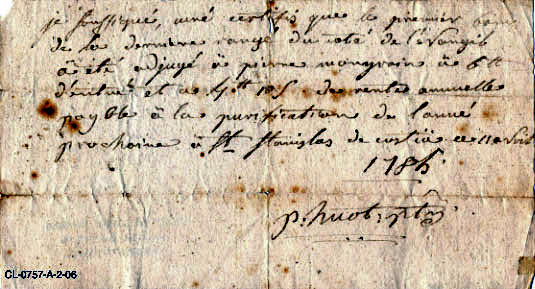 je soussigné, curé certifis que le premier banc
de la derniere rangé du côté de l'évangile
à été adjugé à pierre mongrain à
d'entré et a 10 s. de rente annuelle
payble à la purification de l'anné
prochaine à St. Stanislas de ce 11 avril
178
p. huot, ptre
CL-0757-A-2-06